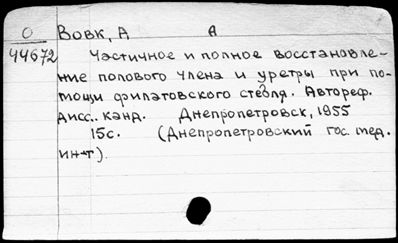 О Вовк, А А
44672 Частичное и полное восстановле-
ние полового члена и уретры при по-
мощи филатовского стебля. Автореф.
дисс. канд. Днепропетровск, 1955
15с. (Днепропетровский гос. мед.
ин-т).